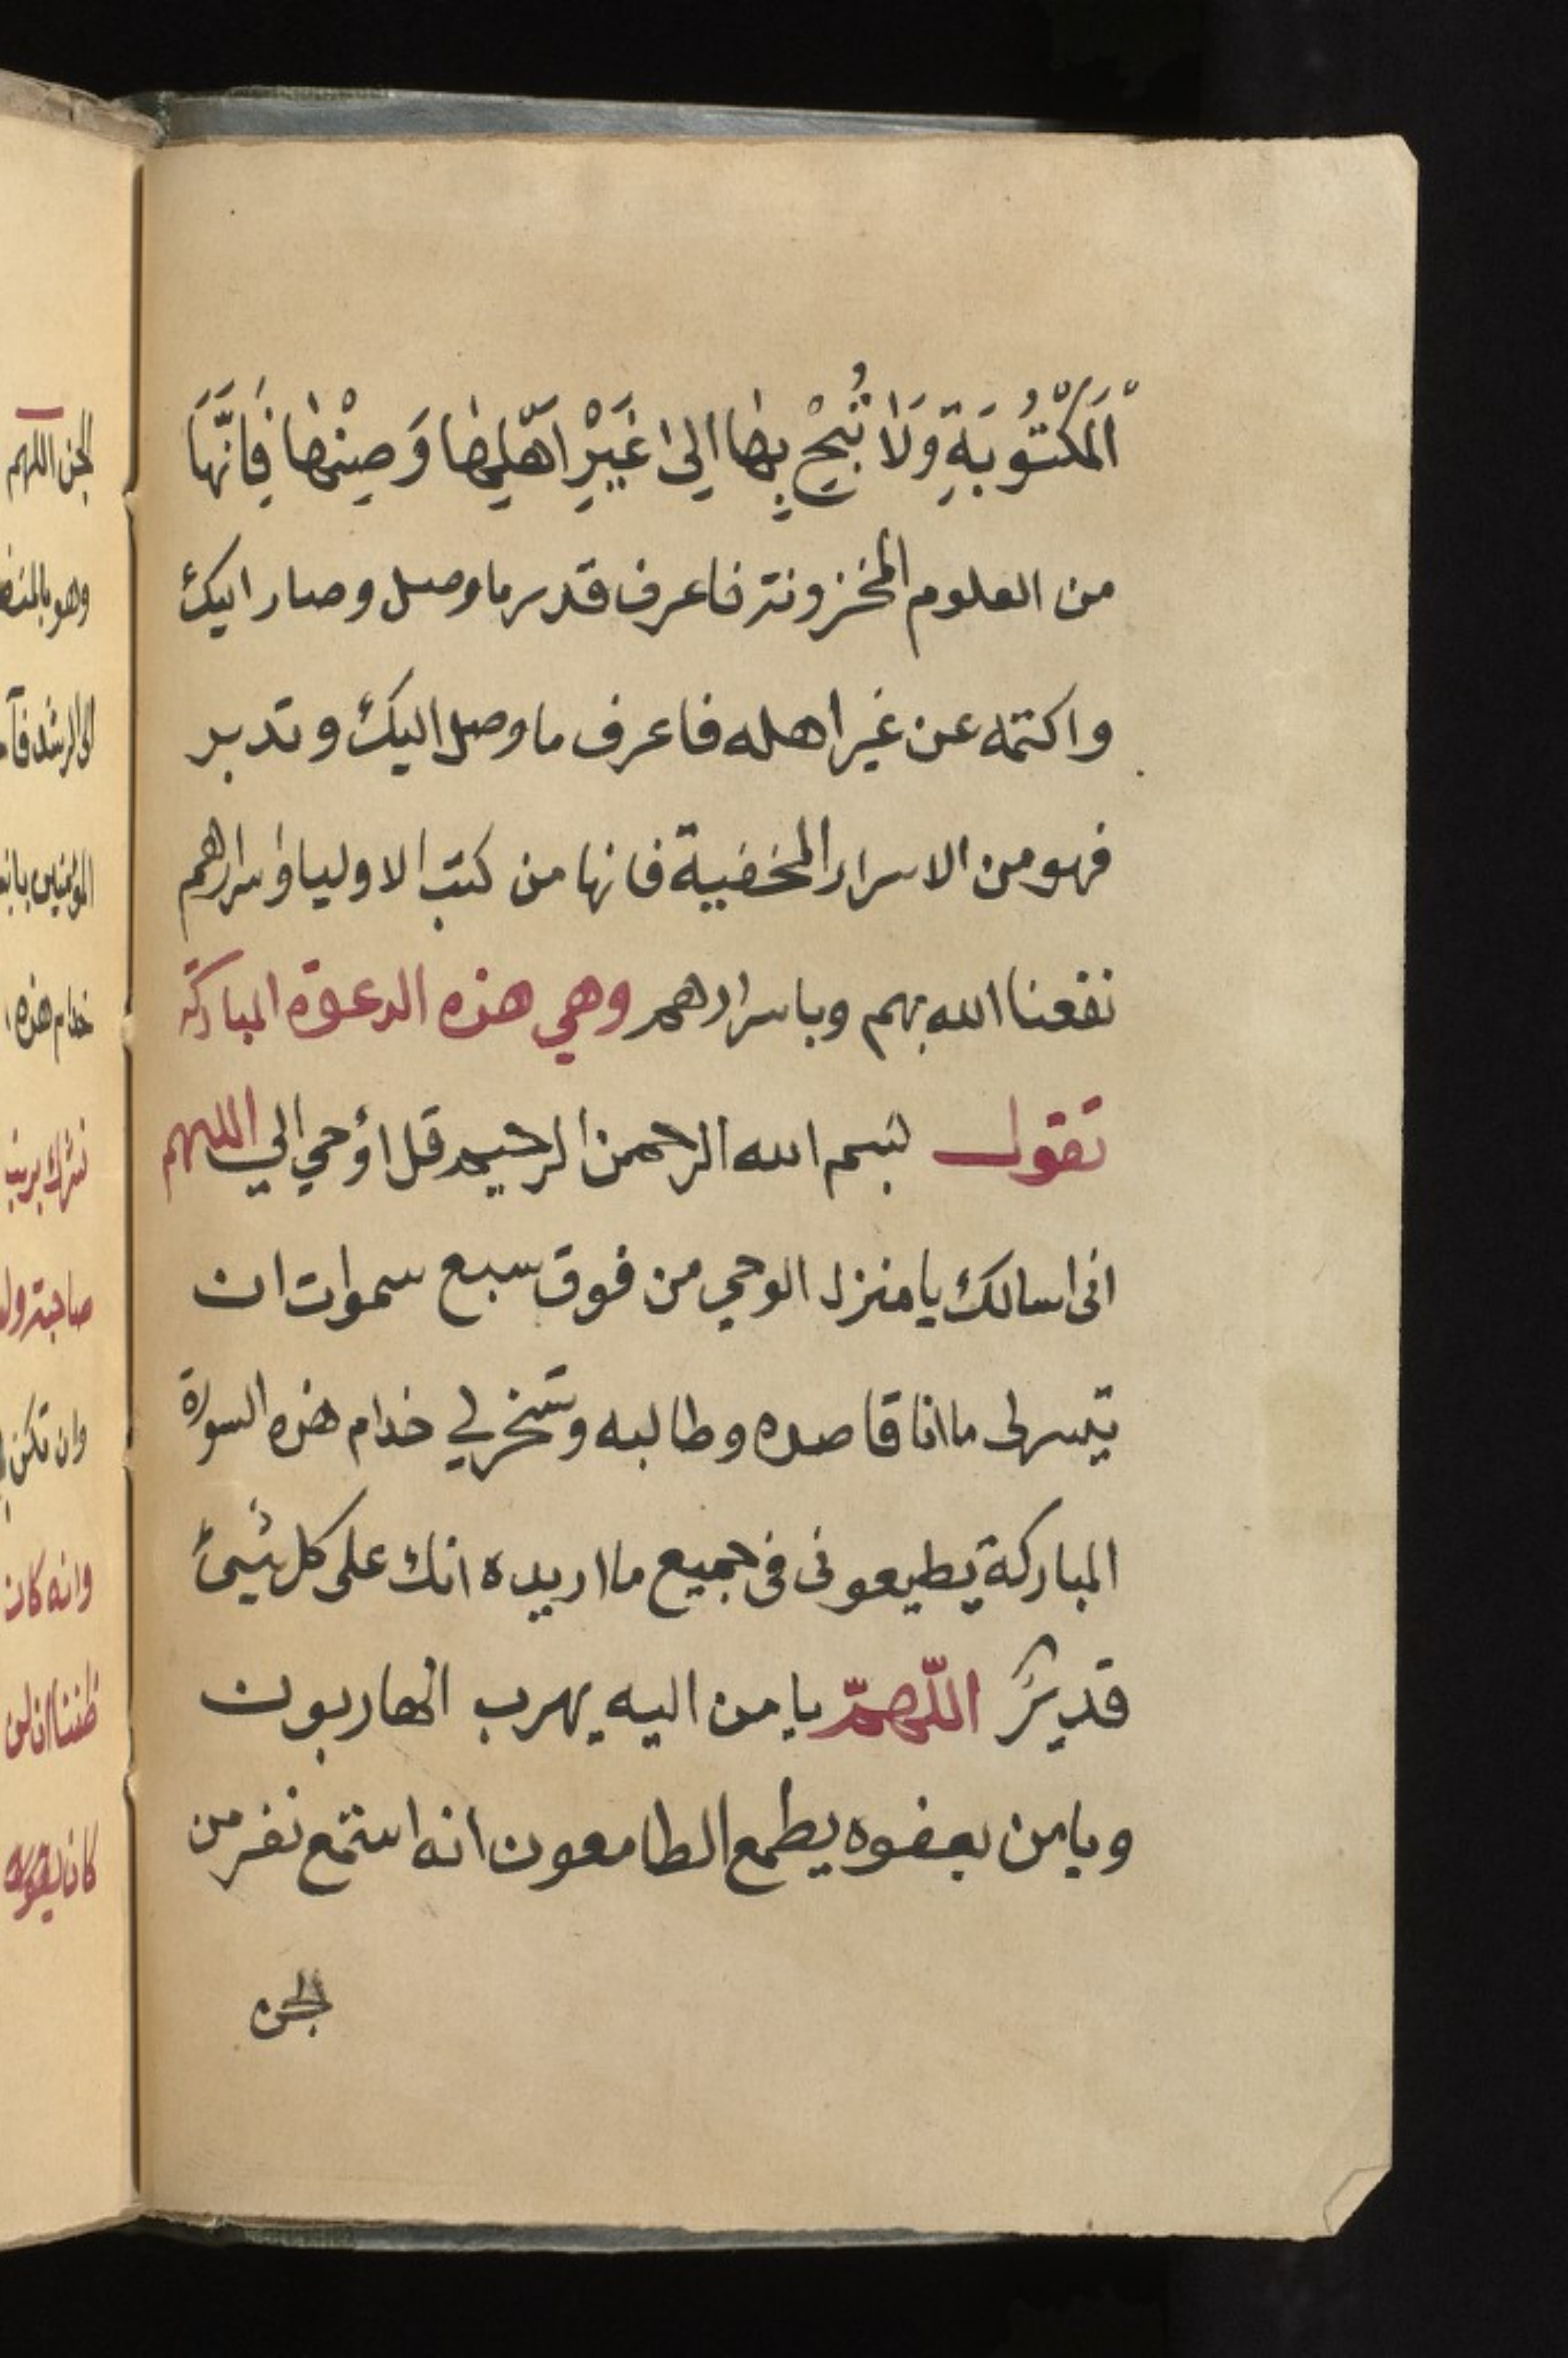 اَلْمَكْتُوبَةِ وَلَا تُبِحْ بِهَا اِلىٰ غَيْرِ اَهْلِهَا وَصِنْهَا فَاِنَّهَا
من العلوم المخزونة فاعرف قدر ما وصل وصار اليك
واكتمه عن غير اهله فاعرف ما وصل اليك وتدبر
فهو من الاسرار المخفية فانها من كتب الاوليا واسرارهم
نفعنا الله بهم وباسرارهم وهي هذه الدعوة المباركة
تقول بسم الله الرحمن الرحيم قل اؤحي الي اللهم
انى اسالك يا منزل الوحي من فوق سبع سموات ان
تيسر لى ما انا قاصده وطالبه وتسخر لي خدام هذه السورة
المباركة يطيعونى فى جميع ما اريده انك على كل شيئ
قديرٌ اللّهمّ يا من اليه يهرب الهاربون
ويا من بعفوه يطمع الطامعون انه استمع نفر من
الجن
الجن اللهم
الى الرشد فآ
المؤمنين بانه
خدام هذه ا
صاحبة ول
وان تكن
وانه كان
ظننا ان لن